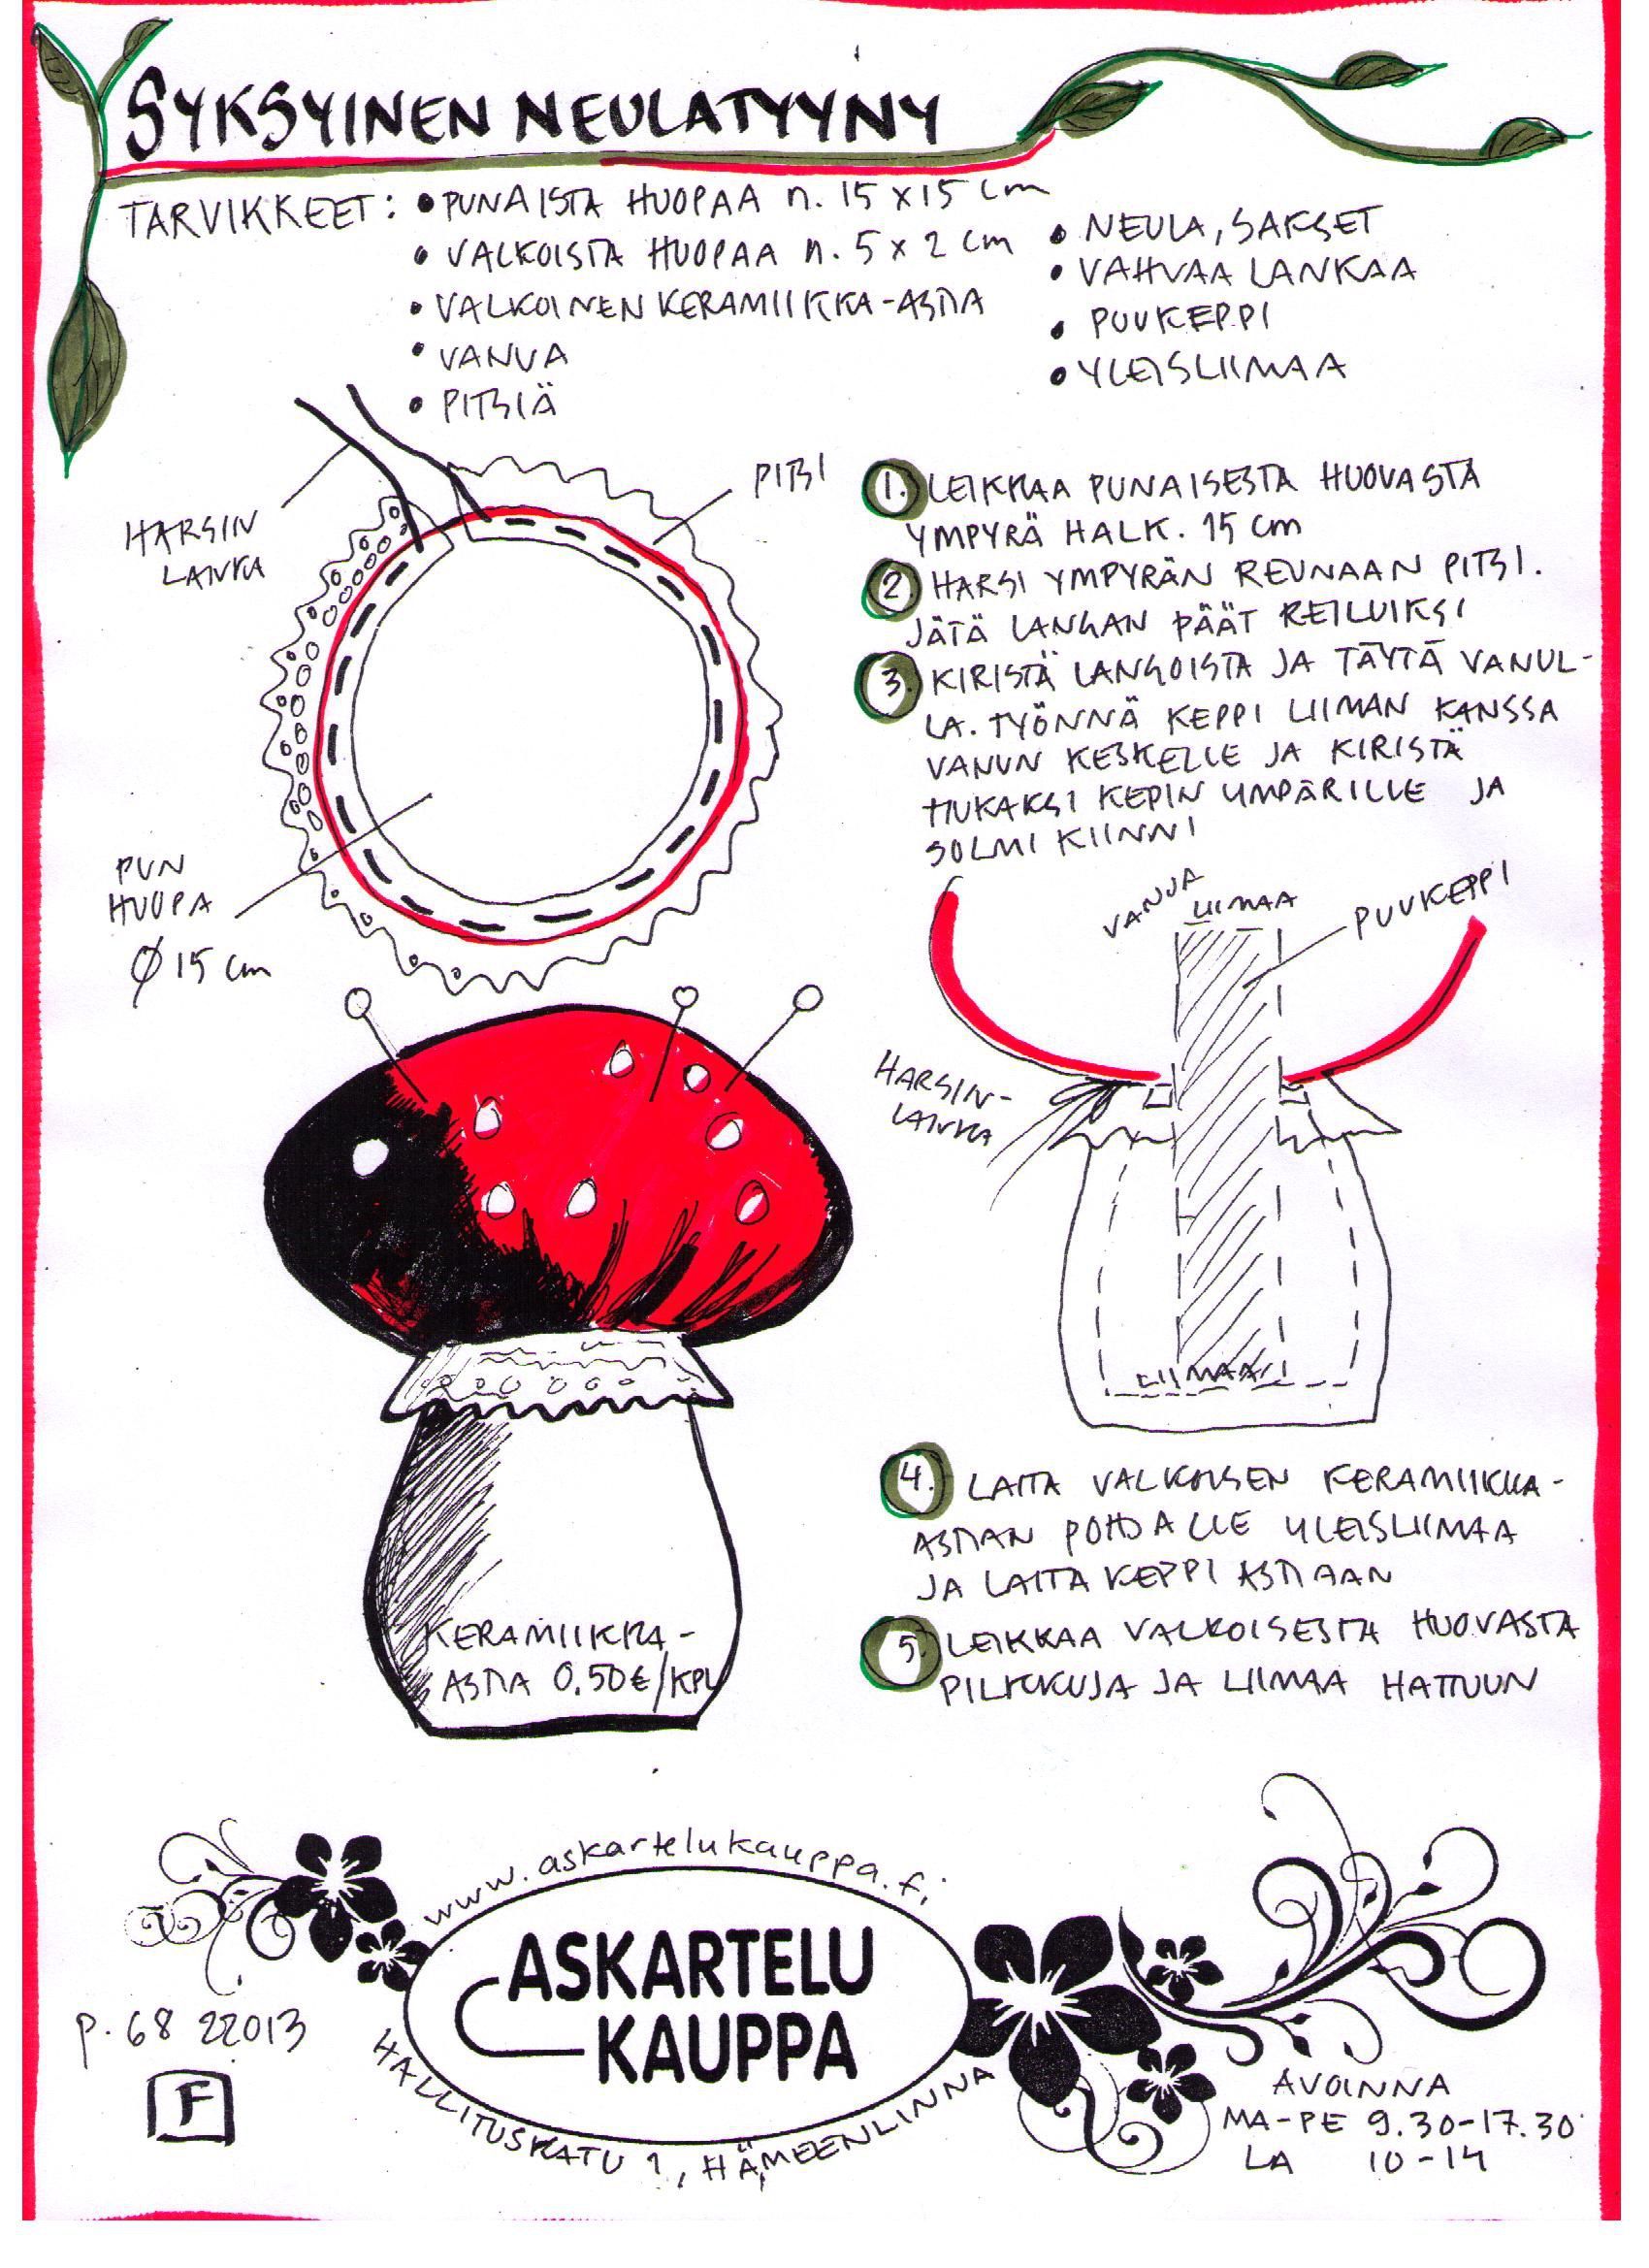 SYKSYINEN NEULATYYNY
TARVIKKEET:
• PUNAISTA HUOPAA n. 15 x 15 cm
• VALKOISTA HUOPAA n. 5 x 2 cm
• VALKOINEN KERAMIIKKA-ASTIA
• VANUA
• PITSIÄ
• NEULA, SAKSET
• VAHVAA LANKAA
• PUUKEPPI
• YLEISLIIMAA
HARSIN
LANKA
PITSI
PUN
HUOPA
Ø 15 cm
1. LEIKKAA PUNAISESTA HUOVASTA
YMPYRÄ HALK. 15 cm
2. HARSI YMPYRÄN REUNAAN PITSI.
JÄTÄ LANGAN PÄÄT REILUIKSI
3. KIRISTÄ LANGOISTA JA TÄYTÄ VANUL-
LA. TYÖNNÄ KEPPI LIIMAN KANSSA
VANUN KESKELLE JA KIRISTÄ
TIUKAKSI KEPIN UMPÄRILLE JA
SOLMI KIINNI
VANUA
LIIMAA
PUUKEPPI
HARSIN-
LANKA
LIIMAA
4. LAITA VALKOISEN KERAMIIKKA-
ASTIAN POHJALLE YLEISLIIMAA
JA LAITA KEPPI ASTIAAN
5. LEIKKAA VALKOISESTA HUOVASTA
PILKKUJA JA LIIMAA HATTUUN
KERAMIIKKA-
ASTIA 0,50 €/KPL
www.askartelukauppa.fi
ASKARTELU
KAUPPA
HALLITUSKATU 1, HÄMEENLINNA
p. 68 22013
F
AVOINNA
MA-PE 9.30-17.30
LA 10-14